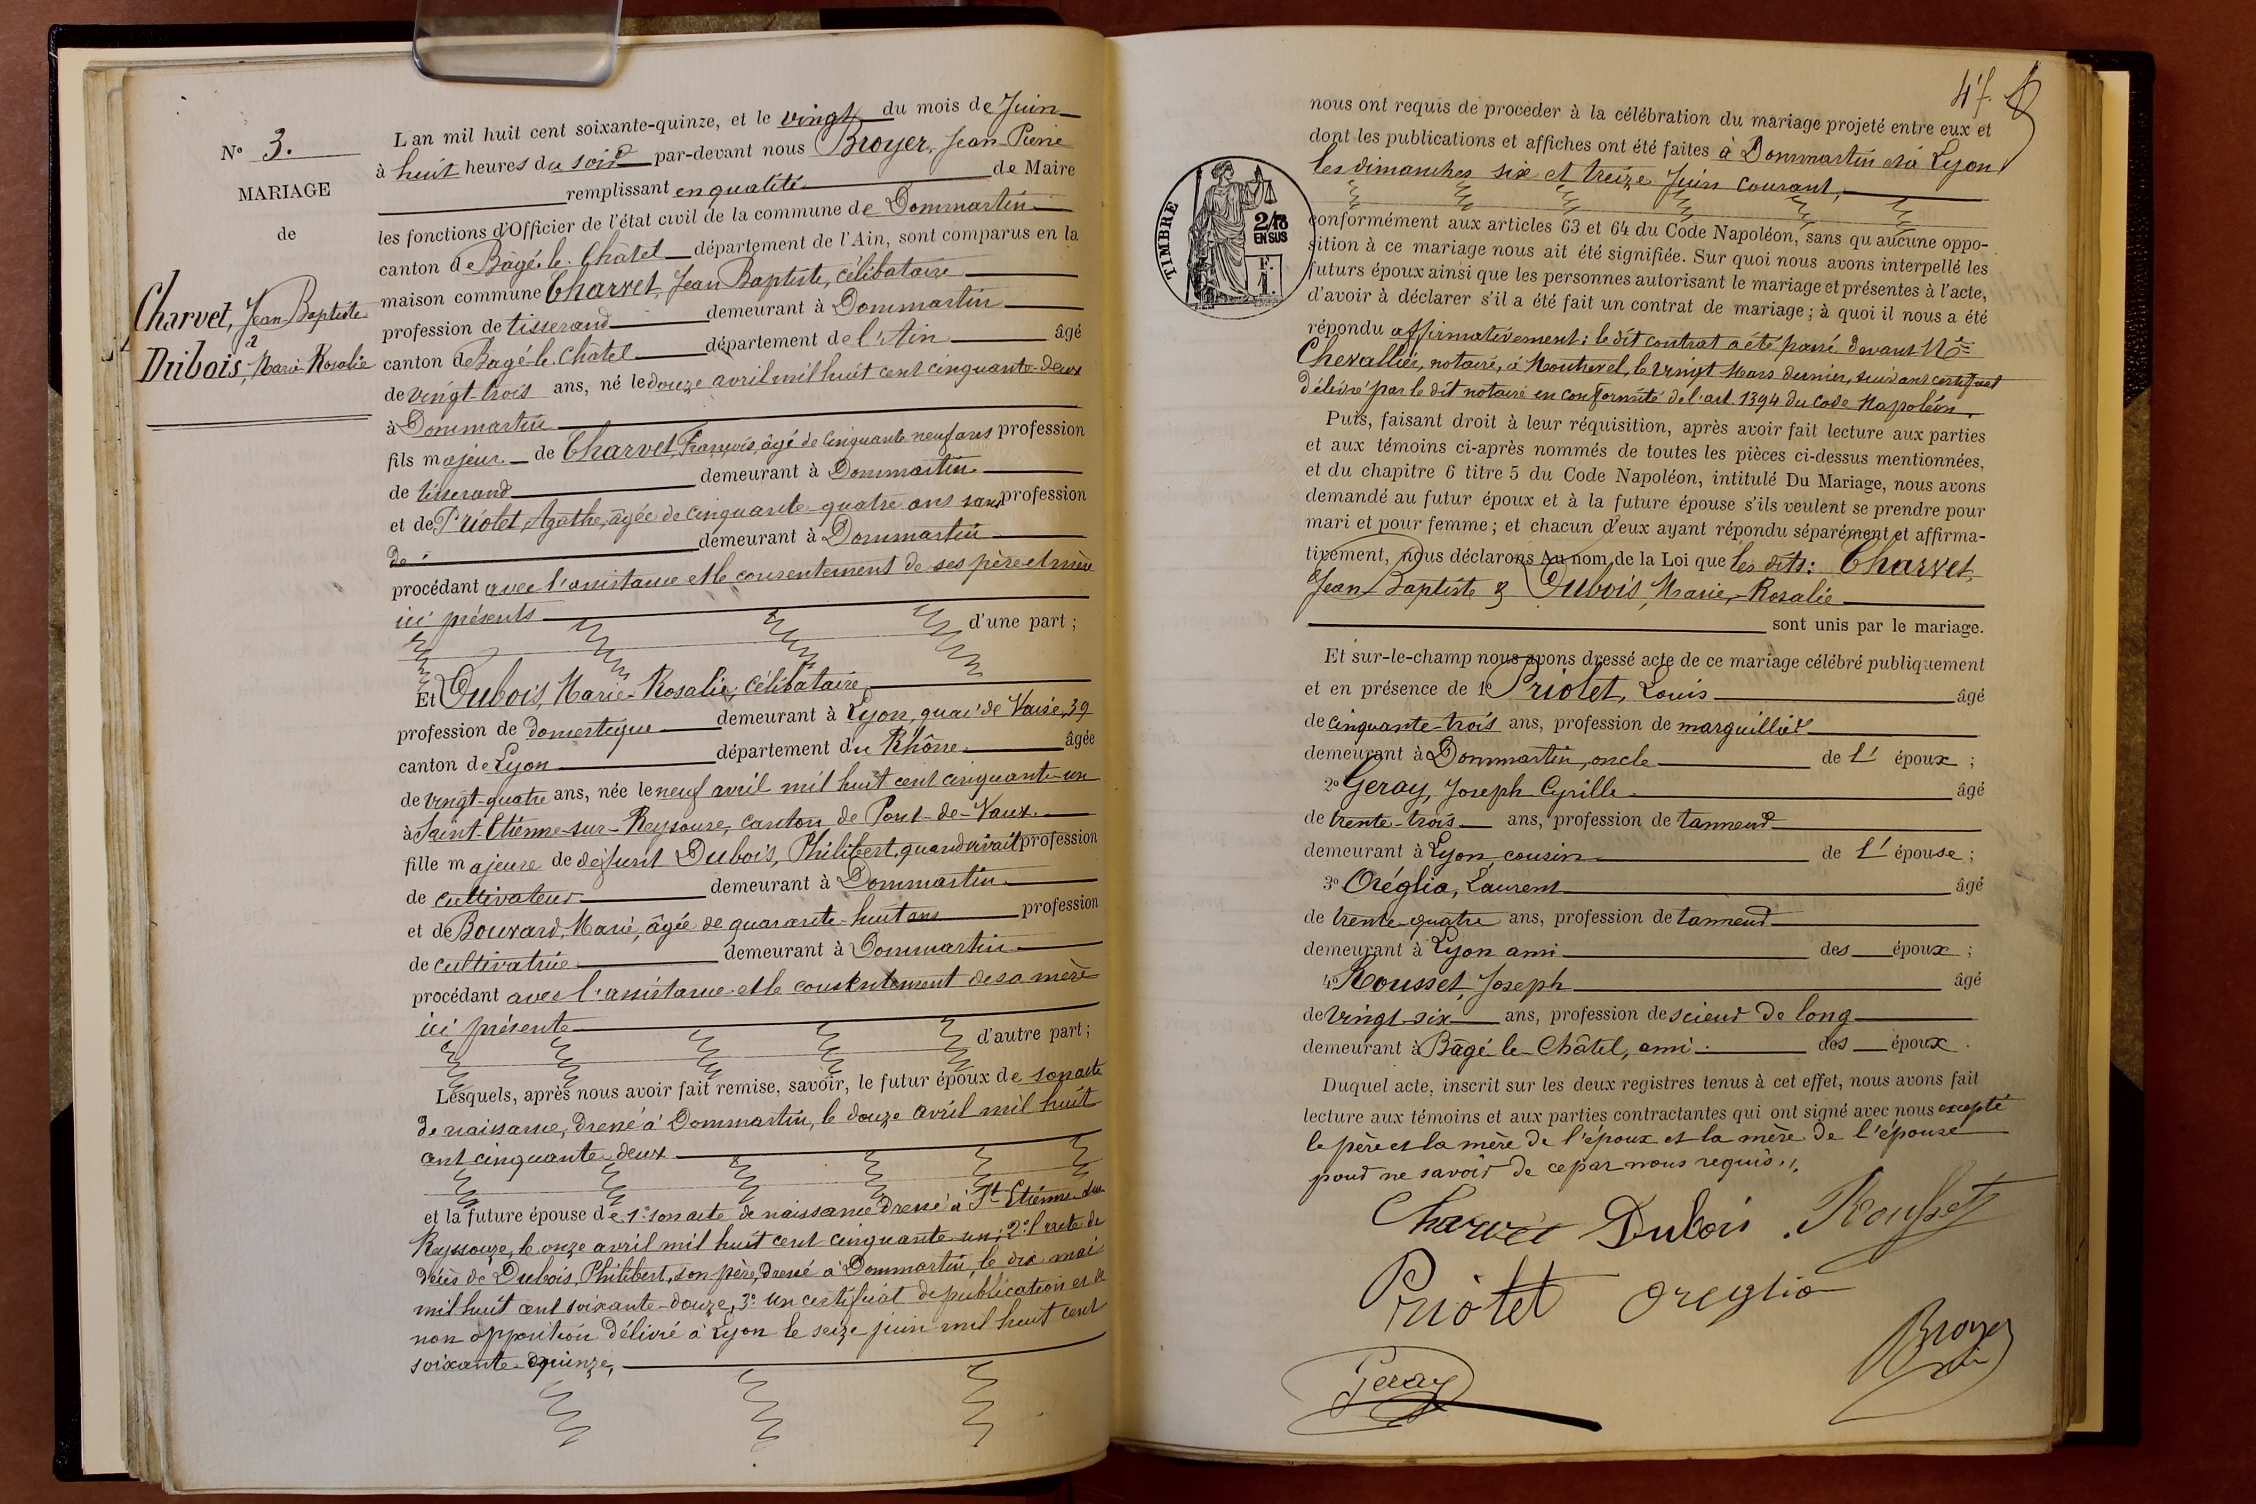 N° 3.
MARIAGE
de
Charvet, Jean Baptiste
&
Dubois, Marie-Rosalie
L'an mil huit cent soixante-quinze, et le vingt du mois de Juin
à huit heures du soir par-devant nous Broyer, Jean-Pierre
remplissant en qualité de Maire
les fonctions d'Officier de l'état civil de la commune de Dommartin
canton de Bâgé-le-Châtel département de l'Ain, sont comparus en la
maison commune Charvet, Jean Baptiste, célibataire
profession de tisserand demeurant à Dommartin
canton de Bâgé-le-Châtel département de l'Ain âgé
de vingt-trois ans, né le douze avril mil huit cent cinquante-deux
à Dommartin
fils majeur de Charvet, François, âgé de cinquante neuf ans profession
de tisserand demeurant à Dommartin
et de Priolet, Agathe, âgée de cinquante-quatre ans sans profession
de demeurant à Dommartin
procédant avec l'assistance et le consentement de ses père et mère
ici présents d'une part ;
Et Dubois, Marie-Rosalie, célibataire
profession de domestique demeurant à Lyon, quai de Vaise, 39
canton de Lyon département du Rhône âgée
de vingt-quatre ans, née le neuf avril mil huit cent cinquante-un
à Saint-Etienne-sur-Reyssouze, canton de Pont-de-Vaux.
fille majeure de défunt Dubois, Philibert, quand vivait profession
de cultivateur demeurant à Dommartin
et de Bouvard, Marie, âgée de quarante-huit ans profession
de cultivatrice demeurant à Dommartin
procédant avec l'assistance et le consentement de sa mère
ici présente d'autre part ;
Lesquels, après nous avoir fait remise, savoir, le futur époux de son acte
de naissance, dressé à Dommartin, le douze avril mil huit
cent cinquante-deux
et la future épouse de 1° son acte de naissance dressé à St Etienne sur
Reyssouze, le onze avril mil huit cent cinquante-un; 2° l'acte de
décès de Dubois, Philibert, son père, dressé à Dommartin, le dix mai
mil huit cent soixante-douze, 3° un certificat de publication et de
non opposition délivré à Lyon le seize juin mil huit cent
soixante-quinze,
47.
nous ont requis de procéder à la célébration du mariage projeté entre eux et
dont les publications et affiches ont été faites à Dommartin et à Lyon
les dimanches six et treize Juin courant,
TIMBRE
2/10
EN SUS
conformément aux articles 63 et 64 du Code Napoléon, sans qu'aucune oppo-
sition à ce mariage nous ait été signifiée. Sur quoi nous avons interpellé les
futurs époux ainsi que les personnes autorisant le mariage et présentes à l'acte,
d'avoir à déclarer s'il a été fait un contrat de mariage ; à quoi il nous a été
répondu affirmativement : le dit contrat a été passé devant Me
Chevallier, notaire, à Montrevel, le vingt Mars dernier, suivant certificat
délivré par le dit notaire en conformité de l'art. 1394 du Code Napoléon.
Puis, faisant droit à leur réquisition, après avoir fait lecture aux parties
et aux témoins ci-après nommés de toutes les pièces ci-dessus mentionnées,
et du chapitre 6 titre 5 du Code Napoléon, intitulé Du Mariage, nous avons
demandé au futur époux et à la future épouse s'ils veulent se prendre pour
mari et pour femme ; et chacun d'eux ayant répondu séparément et affirma-
tivement, nous déclarons Au nom de la Loi que les dits : Charvet,
Jean Baptiste & Dubois, Marie-Rosalie
sont unis par le mariage.
Et sur-le-champ nous avons dressé acte de ce mariage célébré publiquement
et en présence de 1° Priolet, Louis âgé
de cinquante-trois ans, profession de marguillier
demeurant à Dommartin, oncle de l'époux ;
2° Geray, Joseph Cyrille âgé
de trente-trois ans, profession de tanneur
demeurant à Lyon, cousin de l'épouse ;
3° Oréglia, Laurent âgé
de trente-quatre ans, profession de tanneur
demeurant à Lyon ami des époux ;
4° Rousset, Joseph âgé
de vingt-six ans, profession de scieur de long
demeurant à Bâgé-le-Châtel, ami des époux.
Duquel acte, inscrit sur les deux registres tenus à cet effet, nous avons fait
lecture aux témoins et aux parties contractantes qui ont signé avec nous excepté
le père et la mère de l'époux et la mère de l'épouse
pour ne savoir de ce par nous requis.
Charvet Dubois Rousset
Priolet Oreglia
Geray Broyer